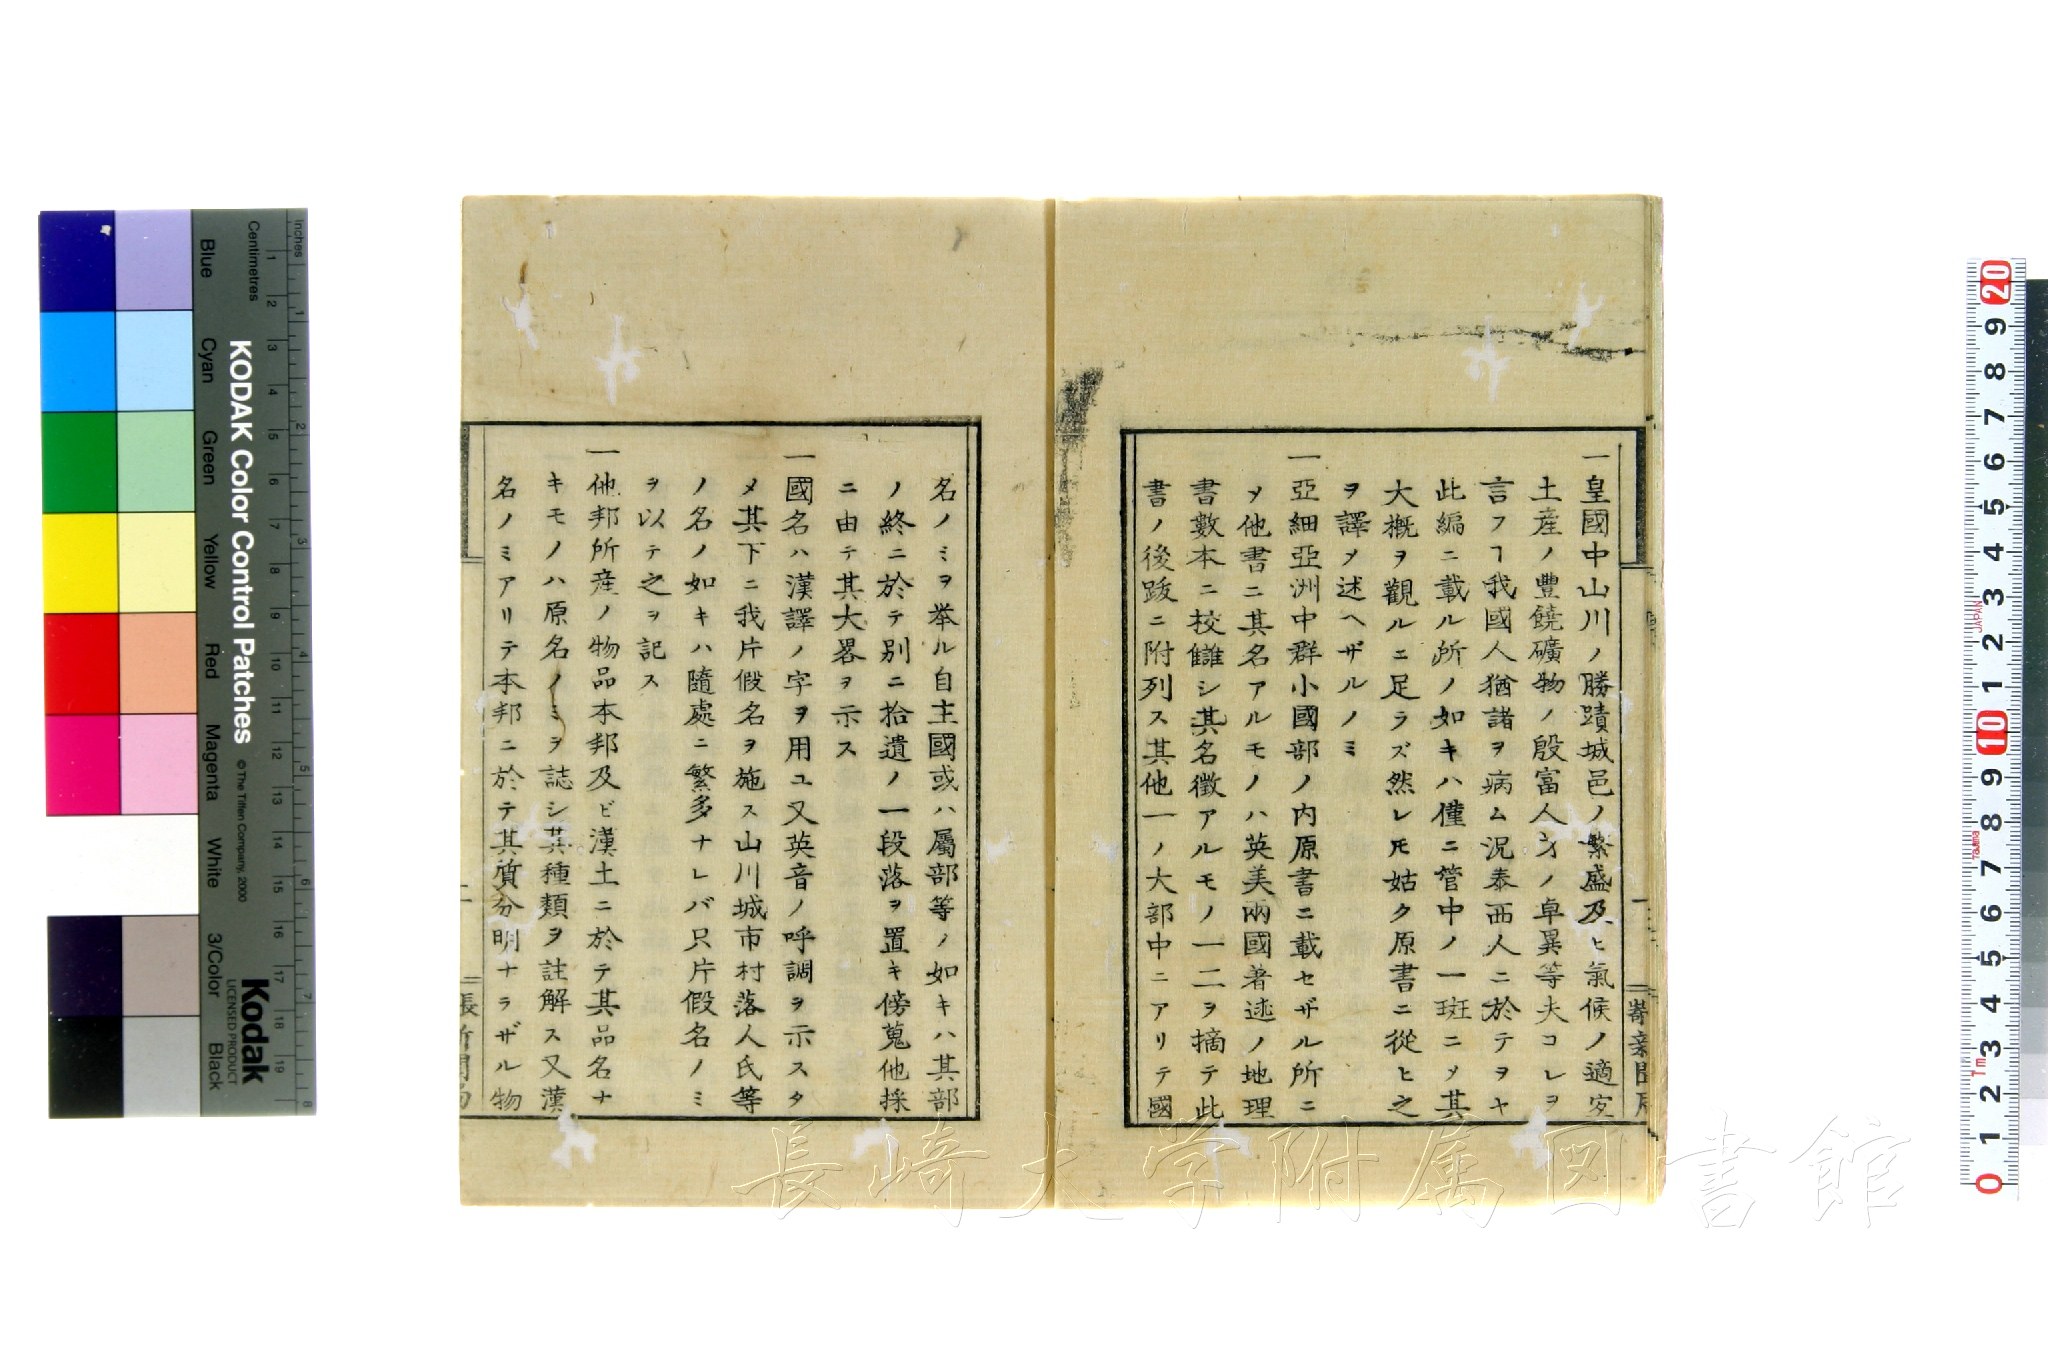 一皇國中山川ノ勝蹟城邑ノ繁盛及ヒ氣候ノ適宜
土産ノ豊饒礦物ノ殷富人才ノ卓異等夫コレヲ
言フヿ我國人猶諸ヲ病ム況泰西人ニ於テヲヤ
此編ニ載ル所ノ如キハ僅ニ管中ノ一斑ニノ其
大概ヲ觀ルニ足ラズ然レ𪜈姑ク原書ニ從ヒ之
ヲ譯ノ述ヘザルノミ
一亞細亞洲中群小國部ノ内原書ニ載セザル所ニ
ノ他書ニ其名アルモノハ英美兩國著述ノ地理
書數本ニ校讎シ其名徴アルモノ一二ヲ摘テ此
書ノ後跋ニ附列ス其他一ノ大部中ニアリテ國
名ノミヲ挙ル自主國或ハ屬部等ノ如キハ其部
ノ終ニ於テ別ニ拾遺ノ一段落ヲ置キ傍蒐他採
ニ由テ其大畧ヲ示ス
一國名ハ漢譯ノ字ヲ用ユ又英音ノ呼調ヲ示スタ
メ其下ニ我片假名ヲ施ス山川城市村落人氏等
ノ名ノ如キハ隨處ニ繁多ナレバ只片假名ノミ
ヲ以テ之ヲ記ス
一他邦所産ノ物品本邦及ビ漢土ニ於テ其品名ナ
キモノハ原名ノミヲ誌シ其種類ヲ註解ス又漢
名ノミアリテ本邦ニ於テ其質分明ナラザル物
長崎大学附属図書館
KODAK Color Control Patches
© The Tiffen Company, 2000
Kodak
LICENSED PRODUCT
Inches
Centimetres
Blue
Cyan
Green
Yellow
Red
Magenta
White
3/Color
Black
1 2 3 4 5 6 7 8 9 10 11 12 13 14 15 16 17 18 19
1 2 3 4 5 6 7 8
20 9 8 7 6 5 4 3 2 1 10 9 8 7 6 5 4 3 2 1 0
JAPAN